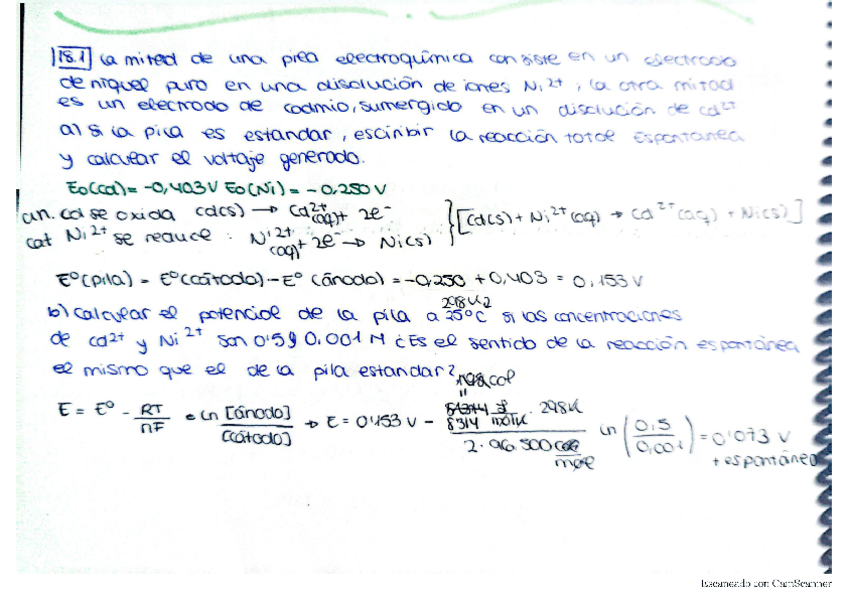 18.1 La mitad de una pila electroquímica consiste en un electrodo
de níquel puro en una disolución de iones Ni2+, la otra mitad
es un electrodo de cadmio, sumergido en un disolución de Cd2+
a) Si la pila es estándar, escribir la reacción total espontánea
y calcular el voltaje generado.
Eo(Cd) = -0,403V Eo(Ni) = -0,250 V
an. Cd se oxida Cd(s) → Cd2+(aq) + 2e-
cat Ni2+ se reduce : Ni2+(aq) + 2e- → Ni(s) } [Cd(s) + Ni2+(aq) → Cd2+(aq) + Ni(s)]
Eº(pila) = Eº(cátodo) - Eº(ánodo) = -0,250 + 0,403 = 0,153 V
b) Calcular el potencial de la pila a 25ºC si las concentraciones
de Cd2+ y Ni2+ son 0'5 y 0,001 M ¿Es el sentido de la reacción espontánea
el mismo que el de la pila estándar?
E = Eº - RT/nF · ln [ánodo]/[cátodo] → E = 0'153 V - 8'314 J/molK · 298K / 2·96.500 mol ln (0,5/0,001) = 0'073 V
+ espontánea
Escaneado con CamScanner